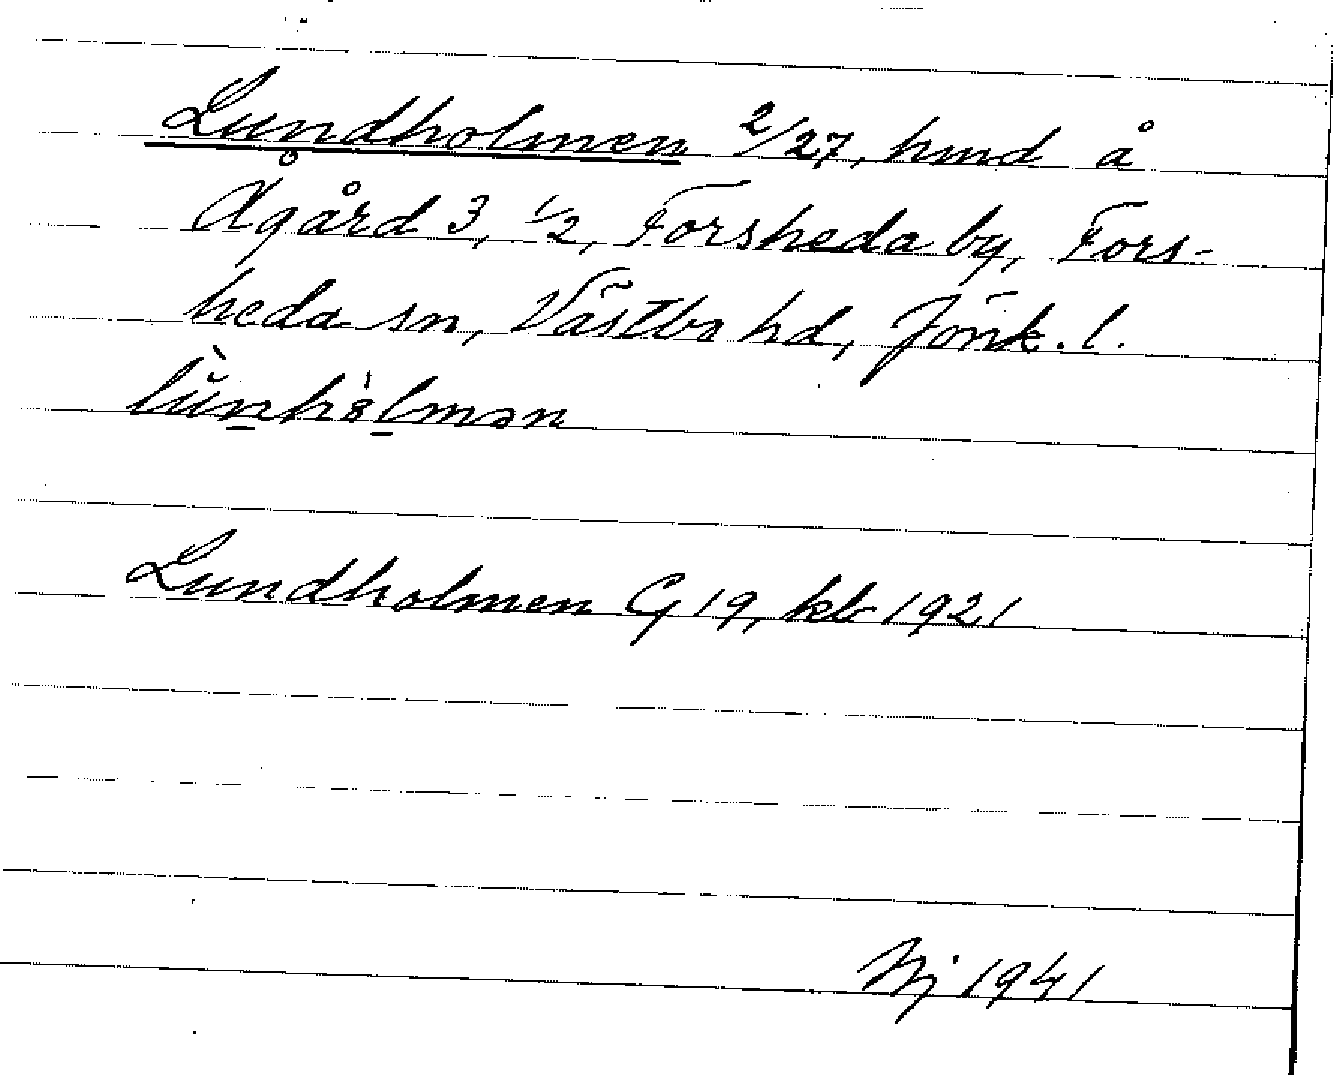 Lundholmen 2/27, hmd å
Ågård 3, 1/2, Forsheda by, Fors-
heda sn, Västbo hd, Jönk. l.
Lundholmen G 19, kb 1921
Nj 1941